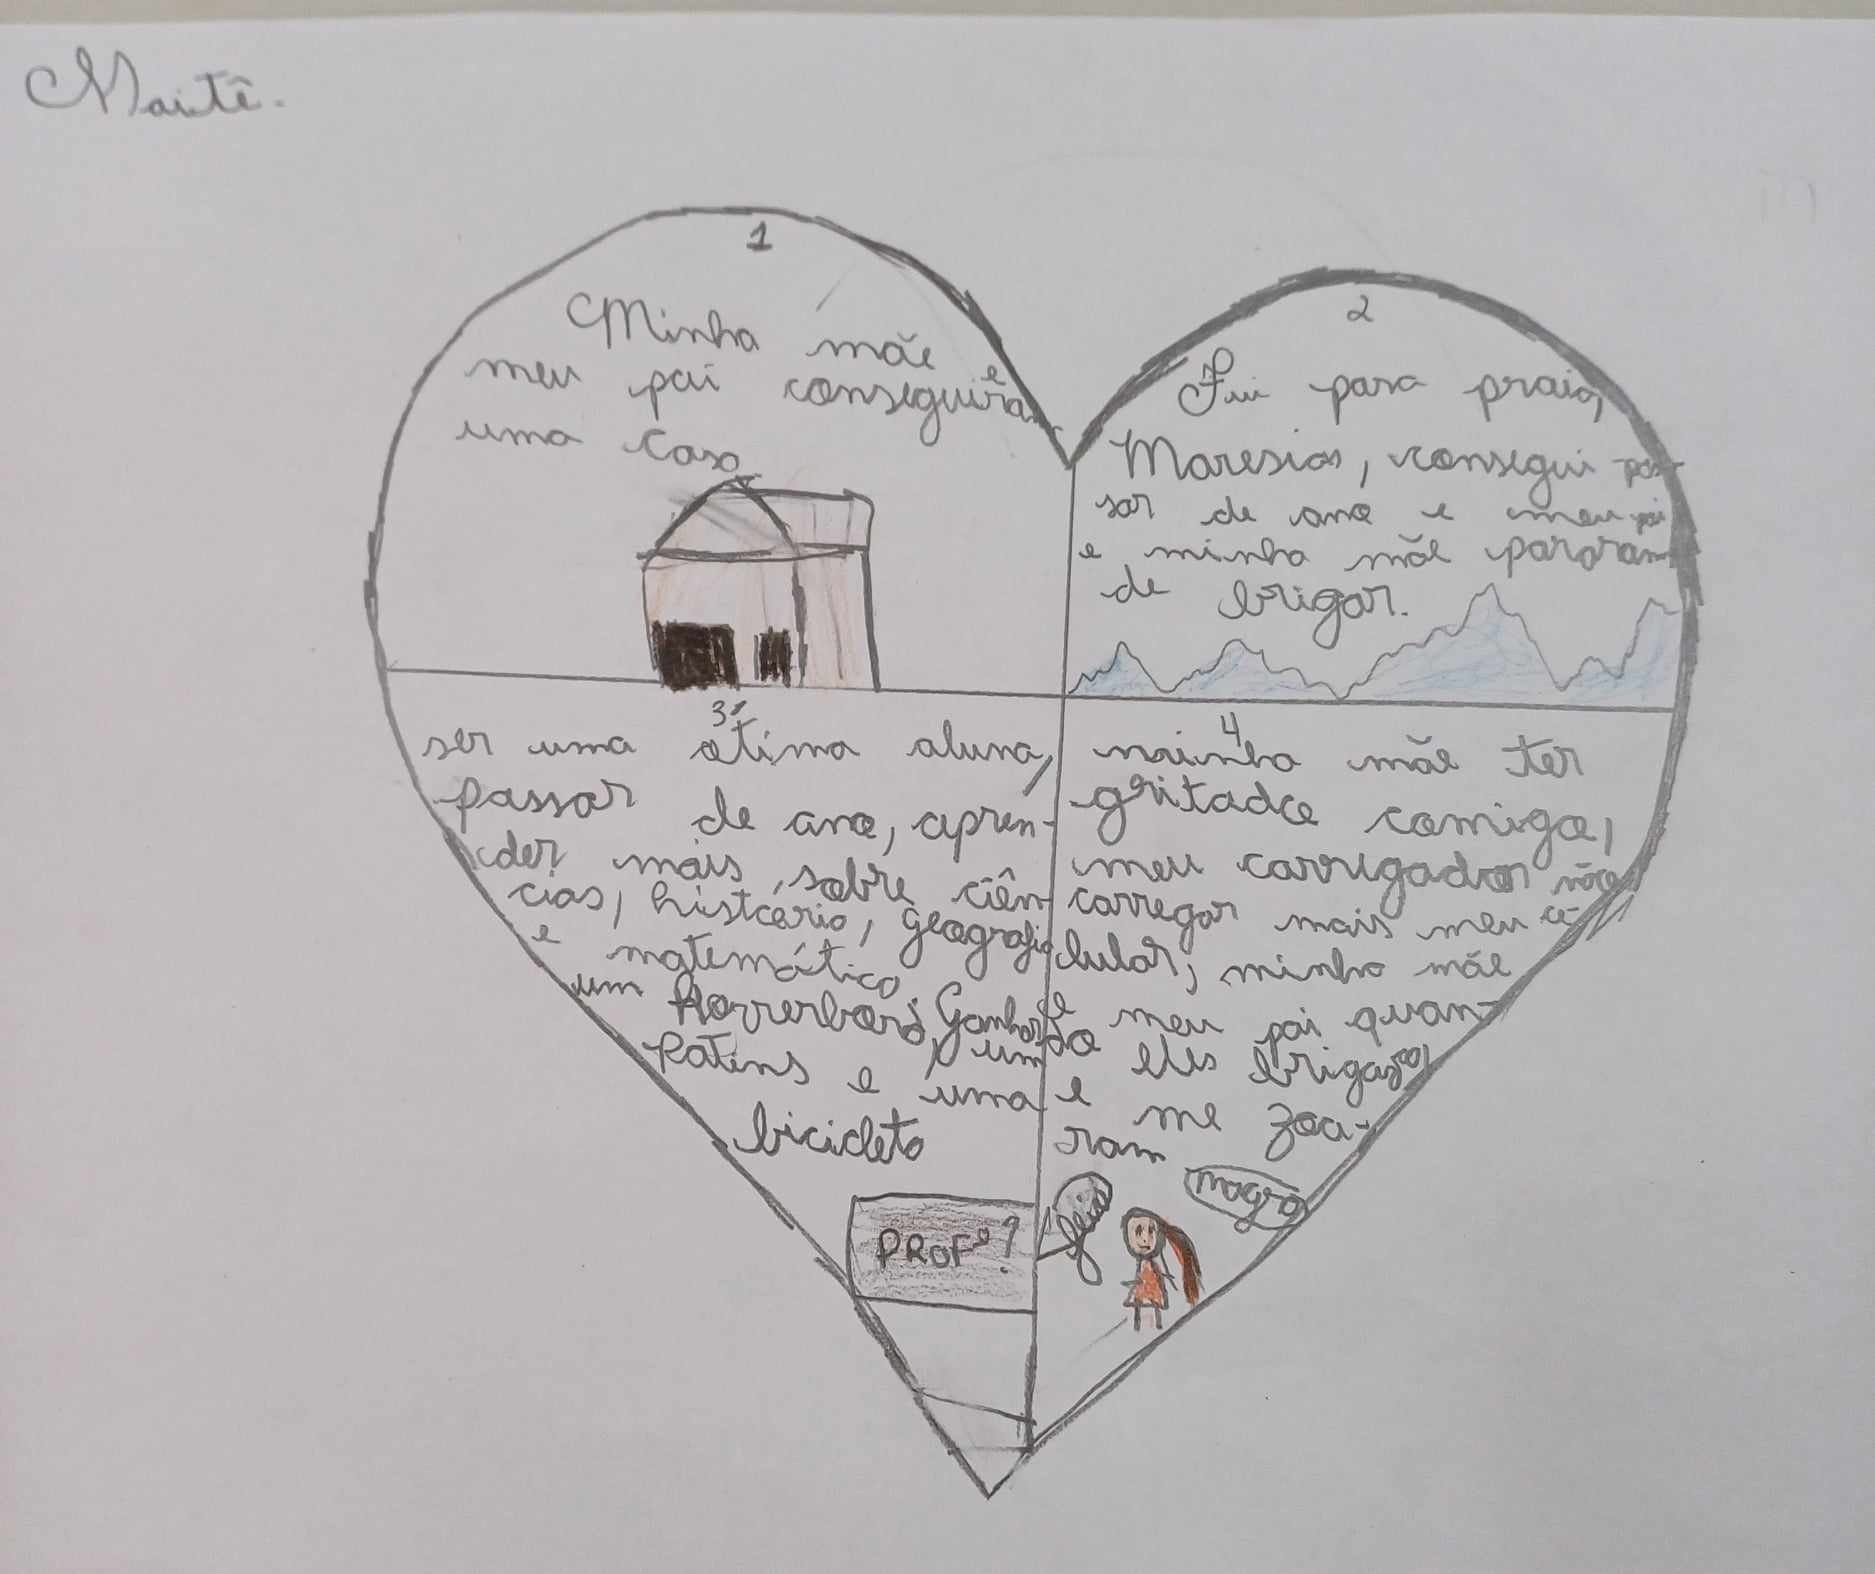 Maitê.
1
Minha mãe e
meu pai conseguiram
uma casa
2
Fui para praia,
Maresias, consegui pas-
sar de ano e meu pai
e minha mãe pararam
de brigar.
3
ser uma ótima aluna,
passar de ano, apren-
der mais sobre ciên-
cias, história, geografia
e matemática, Ganhar
um Horrerbord, um
Patins e uma
bicicleta
PROFª?
4
minha mãe ter
gritado comigo,
meu carregador não
carregar mais meu ce-
lular, minha mãe
e meu pai quan-
do eles brigarão,
e me zoa-
ram
feia
magra